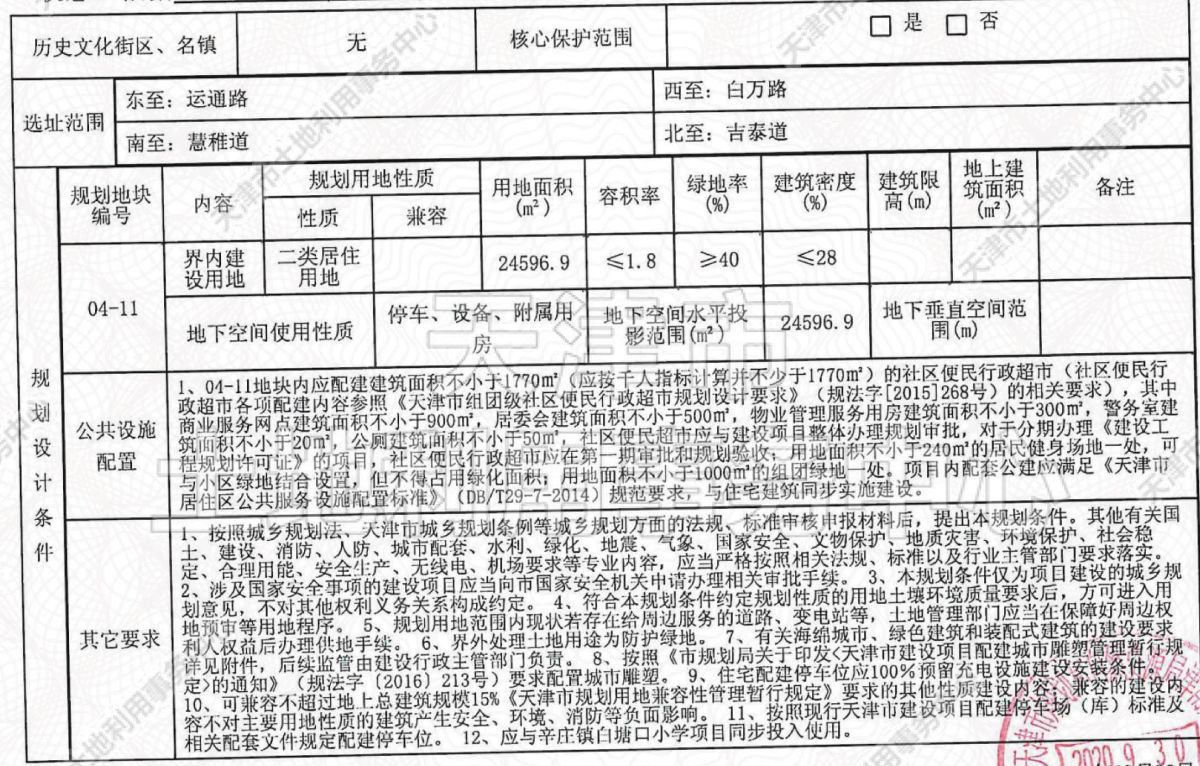 历史文化街区、名镇 无 核心保护范围 □ 是 □ 否
选址范围 东至：运通路 西至：白万路
南至：慧稚道 北至：吉泰道
规划设计条件
规划地块编号 内容 规划用地性质 用地面积(m²) 容积率 绿地率(%) 建筑密度(%) 建筑限高(m) 地上建筑面积(m²) 备注
性质 兼容
04-11 界内建设用地 二类居住用地 24596.9 ≤1.8 ≥40 ≤28
地下空间使用性质 停车、设备、附属用房 地下空间水平投影范围(m²) 24596.9 地下垂直空间范围(m)
公共设施配置
1、04-11地块内应配建建筑面积不小于1770m²（应按千人指标计算并不少于1770m²）的社区便民行政超市（社区便民行
政超市各项配建内容参照《天津市组团级社区便民行政超市规划设计要求》（规法字[2015]268号）的相关要求），其中
商业服务网点建筑面积不小于900m²，居委会建筑面积不小于500m²，物业管理服务用房建筑面积不小于300m²，警务室建
筑面积不小于20m²，公厕建筑面积不小于50m²，社区便民超市应与建设项目整体办理规划审批，对于分期办理《建设工
程规划许可证》的项目，社区便民行政超市应在第一期审批和规划验收；用地面积不小于240m²的居民健身场地一处，可
与小区绿地结合设置，但不得占用绿化面积；用地面积不小于1000m²的组团绿地一处。项目内配套公建应满足《天津市
居住区公共服务设施配置标准》（DB/T29-7-2014）规范要求，与住宅建筑同步实施建设。
其它要求
1、按照城乡规划法、天津市城乡规划条例等城乡规划方面的法规、标准审核申报材料后，提出本规划条件。其他有关国
土、建设、消防、人防、城市配套、水利、绿化、地震、气象、国家安全、文物保护、地质灾害、环境保护、社会稳
定、合理用能、安全生产、无线电、机场要求等专业内容，应当严格按照相关法规、标准以及行业主管部门要求落实。
2、涉及国家安全事项的建设项目应当向市国家安全机关申请办理相关审批手续。 3、本规划条件仅为项目建设的城乡规
划意见，不对其他权利义务关系构成约定。 4、符合本规划条件约定规划性质的用地土壤环境质量要求后，方可进入用
地预审等用地程序。 5、规划用地范围内现状若存在给周边服务的道路、变电站等，土地管理部门应当在保障好周边权
利人权益后办理供地手续。 6、界外处理土地用途为防护绿地。 7、有关海绵城市、绿色建筑和装配式建筑的建设要求
详见附件，后续监管由建设行政主管部门负责。 8、按照《市规划局关于印发<天津市建设项目配建城市雕塑管理暂行规
定>的通知》（规法字〔2016〕213号）要求配置城市雕塑。 9、住宅配建停车位应100%预留充电设施建设安装条件。
10、可兼容不超过地上总建筑规模15%《天津市规划用地兼容性管理暂行规定》要求的其他性质建设内容；兼容的建设内
容不对主要用地性质的建筑产生安全、环境、消防等负面影响。 11、按照现行天津市建设项目配建停车场（库）标准及
相关配套文件规定配建停车位。 12、应与辛庄镇白塘口小学项目同步投入使用。
天津市土地利用事务中心
2020.9.30